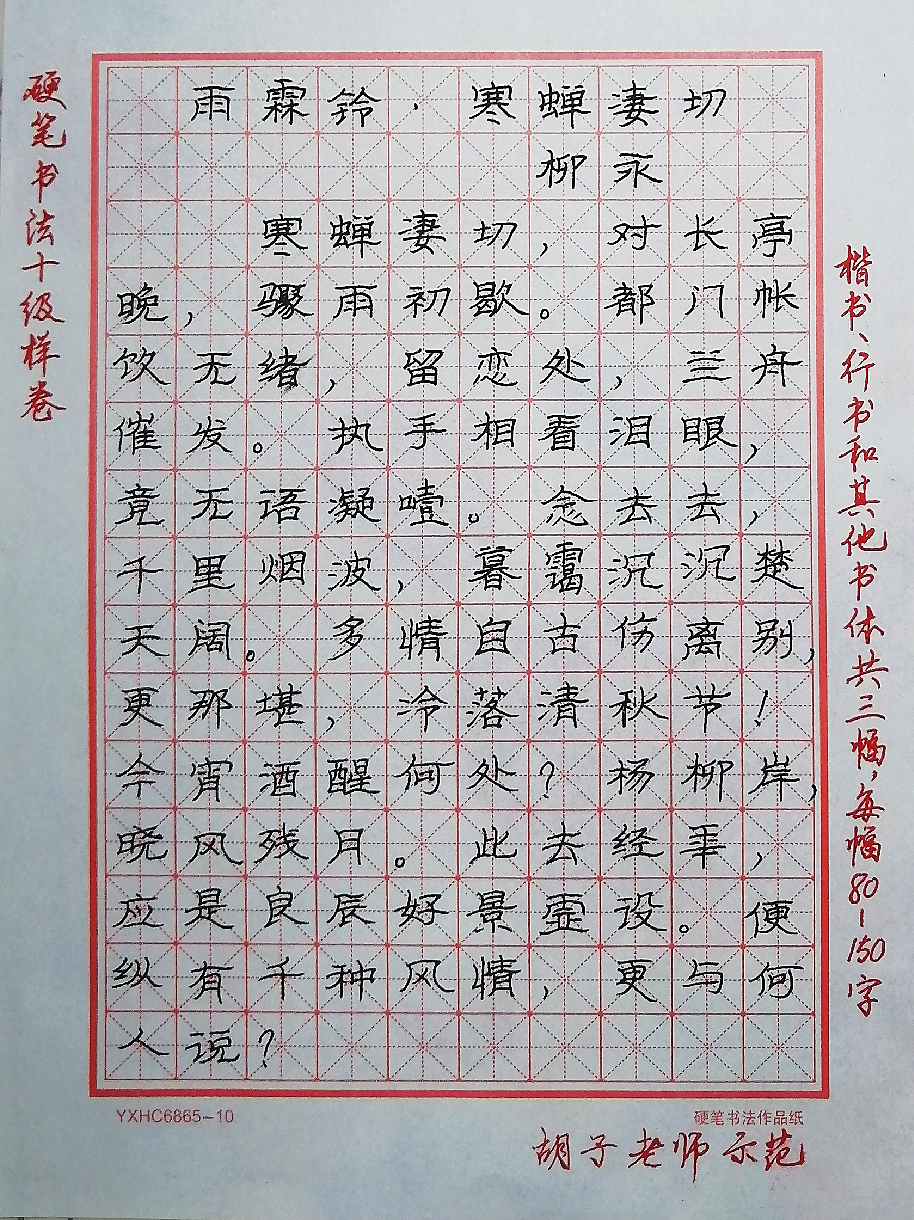 硬笔书法十级样卷
雨霖铃·寒蝉凄切
柳永
寒蝉凄切，对长亭
晚，骤雨初歇。都门帐
饮无绪，留恋处，兰舟
催发。执手相看泪眼，
竟无语凝噎。念去去，
千里烟波，暮霭沉沉楚
天阔。多情自古伤离别，
更那堪，冷落清秋节！
今宵酒醒何处？杨柳岸，
晓风残月。此去经年，
应是良辰好景虚设。便
纵有千种风情，更与何
人说？
楷书、行书和其他书体共三幅，每幅80-150字
YXHC6865-10
硬笔书法作品纸
胡子老师示范